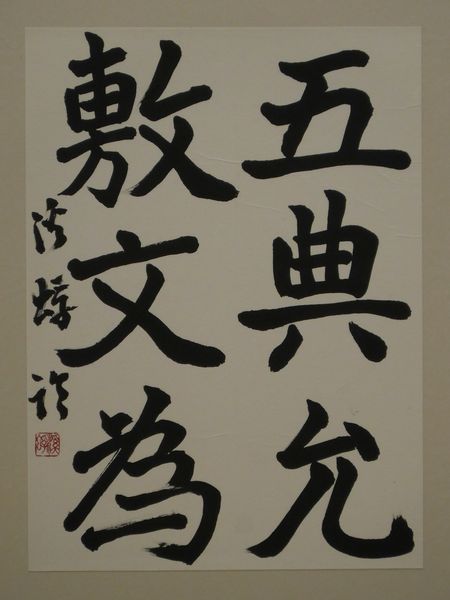 五典允
敷文為